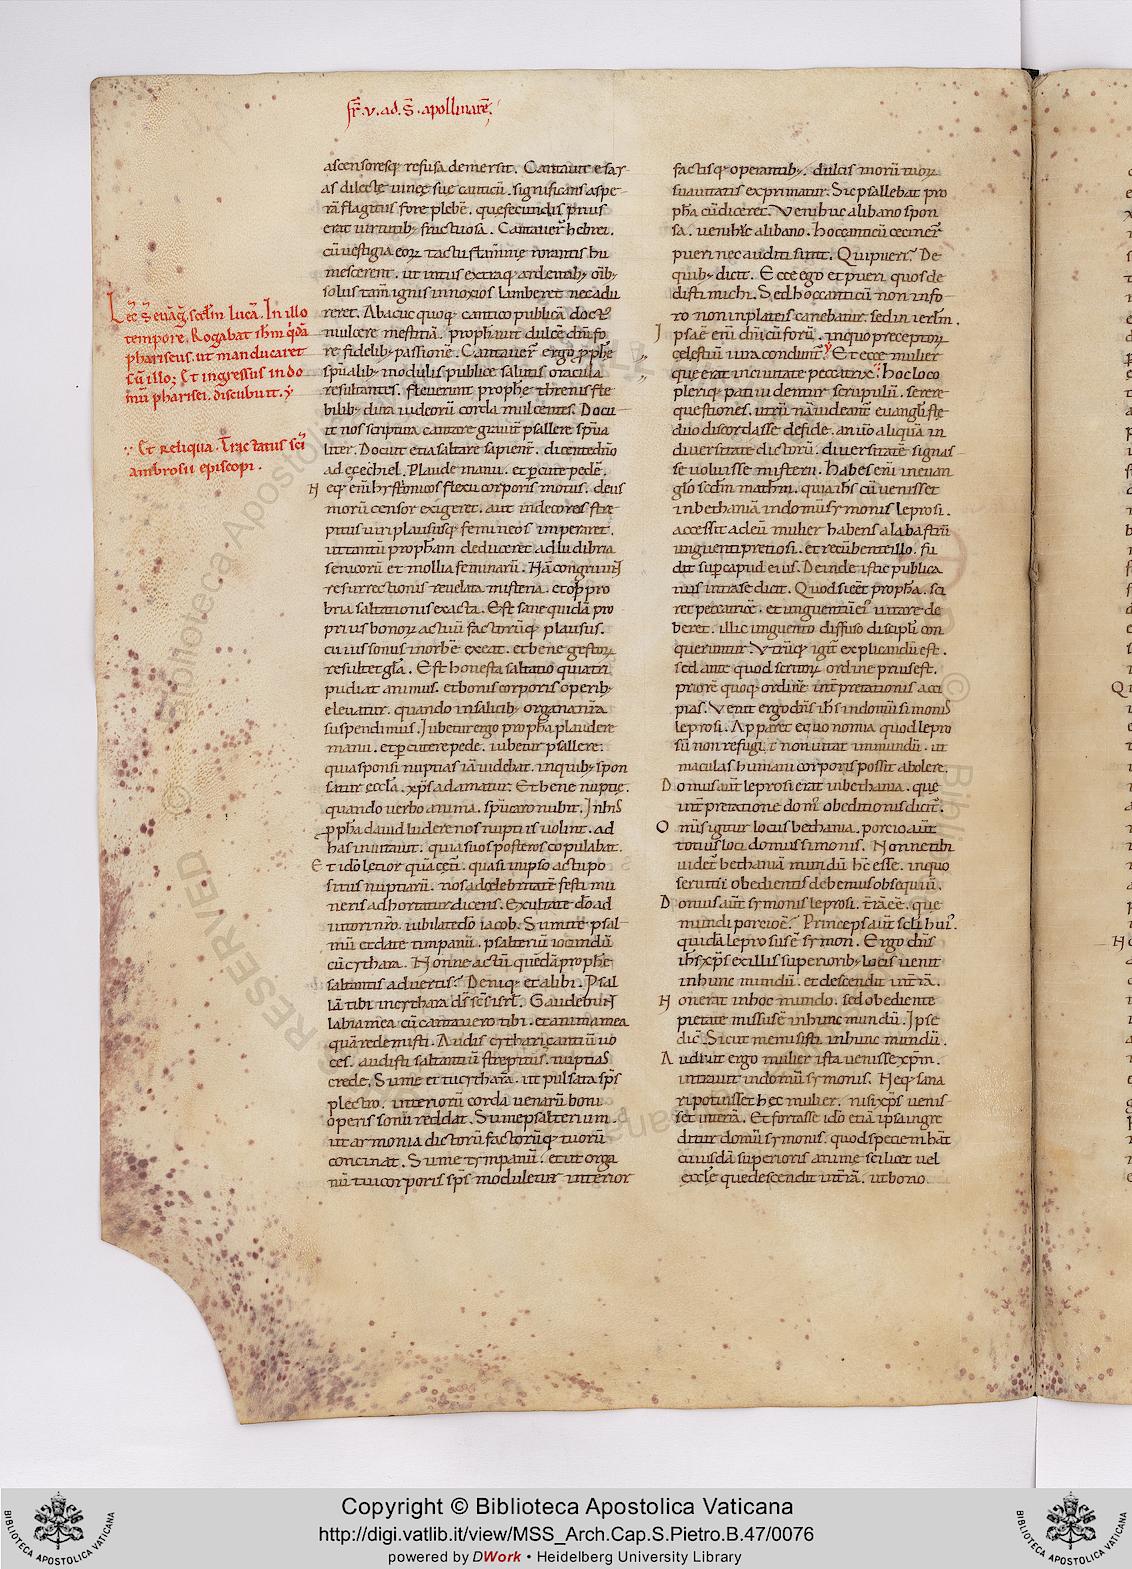 fr̄. v. ad. S̄. apollinarē.
Lec̄. S. evāg̅. scd̄m lucā. In illo
tempore. Rogabat ih̄m q̇dā
phariseus. ut manducaret
cū illo; Et ingressus in do
mū pharisei. discubuit.
Et reliqua. Tractatus sc̄i
ambrosii episcopi.
ascensoresq; refusa demersit. Cantavit esay
as dilectę vineę suę canticū. significans aspe
rā flagitiis fore plebē. que fecundis prius
erat virtutib; fructuosa. Cantaver̄ hebrei.
cū vestigia eoꝝ tactu flāmine rorantis hu
mescerent. ut intus extraq; ardentib; om̄ib;
solus tam̄ ignis innoxios lamberet nec adu
reret. Abacuc quoq; cantico publicā doct᷒
mulcere mestitiā. prophavit dulcē dn̄i fo
re fidelib; passionē. Cantaver̄ ergo ꝓphe
spūalib; modulis publice salutis oracula
resultantes. fleverunt prophe threnis fle
bilib; dura iudeorū corda mulcentes. Docu
it nos scriptura cantare graviṫ psallere spūa
liter. Docuit etiā saltare sapienṫ. dicente dn̄o
ad ęzechiel. Plaude manu. et ꝑcute pedē.
Neq; em̄ hystrionicos flexu corporis motus. deus
morū censor exigeret. aut indecores stre
pitus viri plaususq; femineos imperaret.
ut tantū prophām deduceret ad ludibria
senicorū et mollia feminarū. Nā congruunt
resurrectionis revelata misteria. et opp̄ro
bria saltationis exacta. Est sane quidā pro
prius bonoꝝ actuū factorūq; plausus.
cuius sonus in orbē exeat. et bene gestoꝝ
resultet gl̄a. Est honesta saltatio qua tri
pudiat animus. et bonis corporis operib;
elevatur. quando in salicib; organa nr̄a
suspendimus. Jubetur ergo prophā plaudere
manu. et ꝑcutere pede. iubetur psallere.
quia sponsi nuptias iā videbat. in quib; spon
satur eccl̄a. xp̄s adamatur. Et bene nuptię.
quando verbo anima. spūi caro nubit. In his
ꝓphā david ludere nos nuptiis voluit. ad
has invitavit. quia suos posteros copulabat.
Et idō lętior quā cęti. quasi in ipso actu po
situs nuptiarū. nos ad celebritatē festi mu
neris adhortatur dicens. Exultate dō ad
iutori nr̄o. iubilate dō iacob. Sumite psal
mū et date timpanū. psalteriū iocundū
cū cythara. Nonne actū quedā prophe
saltantis advertis? Deniq; et alibi. Psal
lā tibi in cythara ds̄ sc̄s isrl̄. Gaudebunt
labia mea cū cantavero tibi. et anima mea
quā redemisti. Audis cytharizantiū vo
ces. audisti saltantiū strepitus. nuptias
crede. Sume et tu cytharā. ut pulsata sp̄s
plectro. interiorū corda venarū boni
operis sonū reddat. Sume psalterium.
ut armonia dictorū factorūq; tuorū
concinat. Sume tympanū. et ut orga
nū tui corporis sp̄s moduletur interior
factisq; operantib;. dulcis morū tuoꝝ
suavitatis exprimatur. Sic psallebat pro
phā cū diceret. Veni huc a libano spon
sa. veni h̄c a libano. Hoc canticū cecinēr
pueri nec auditi sunt. Qui pueri? De
quib; dicit. Ecce ego et pueri quos de
disti michi. Sed hoc canticū non in fo
ro non in plateis canebatur. sed in ierlm̄.
Ipsa ē em̄ dn̄icū forū. in quo preceptoꝝ
cęlestiū iura condunt᷒. Et ecce mulier
que erat in civitate peccatrix. Hoc loco
pleriq; pati videntur scrupulū. serere
questiones. utrū nā videant᷒ evangl̄iste
duo discordasse de fide. an v̇o aliquā in
diversitate dictorū. diversitatē signas
se voluisse misterii. Habes em̄ in evan
glīo scd̄m math̄m. quia ih̄s cū venisset
in bethaniā in domū symonis leprosi.
accessit ad eū mulier habens alabastrū
unguenti pretiosi. et recūbente illo. fu
dit suꝑ capud eius. Deinde iste publica
nus intra se dicit. Quod si eēt prophā. sci
ret peccatricē. et unguentū ei᷒ vitare de
beret. illic unguento diffuso discipl̄i con
querunṫur. Vtrūq; igiṫ explicandū est.
sed ante quod scriptoꝝ ordine prius est.
priorē quoq; ordinē int̄pretationis acci
pias. Venit ergo dn̄s ih̄s in domū simonis
leprosi. Apparet equo nomia quod lepro
sū non refugit. non vitat inmundū. ut
maculas humani corporis possit abolere.
Domus aut̄ leprosi erat in bethania. que
int̄pretatione dom᷒ obeditionis dicit᷒.
Omīs igitur locus bethania. porcio aut̄
totius loci domus simonis. Nonne tibi
videt᷒ bethaniā mundū hc̄ esse. in quo
servitii obedientis debemus obsequiū.
Domus aut̄ symonis leprosi. t̄ra ēē. que
mundi porcio ē. Princeps aut̄ scl̄i hui᷒.
quidā leprosus ē symon. Ergo dn̄s
ih̄s xp̄s ex illis superiorib; locis venit
in hunc mundū. et descendit in t̄rā.
Non erat in hoc mundo. sed obediente
pietate missus ē in hunc mundū. Ipse
dic̄. Sicut me misisti. in hunc mundū.
Audivit ergo mulier ista venisse xp̄m.
intravit in domū symonis. Neq; sana
ri potuisset hec mulier. nisi xp̄s venis
set in terrā. Et fortasse idō etiā ipsa ingre
ditur domū symonis. quod speciem hāt
cuiusdā superioris anime scilicet vel
ęccl̄e que descendit in t̄rā. ut bono
Copyright © Biblioteca Apostolica Vaticana
http://digi.vatlib.it/view/MSS_Arch.Cap.S.Pietro.B.47/0076
powered by DWork • Heidelberg University Library
BIBLIOTECA APOSTOLICA VATICANA
BIBLIOTECA APOSTOLICA VATICANA